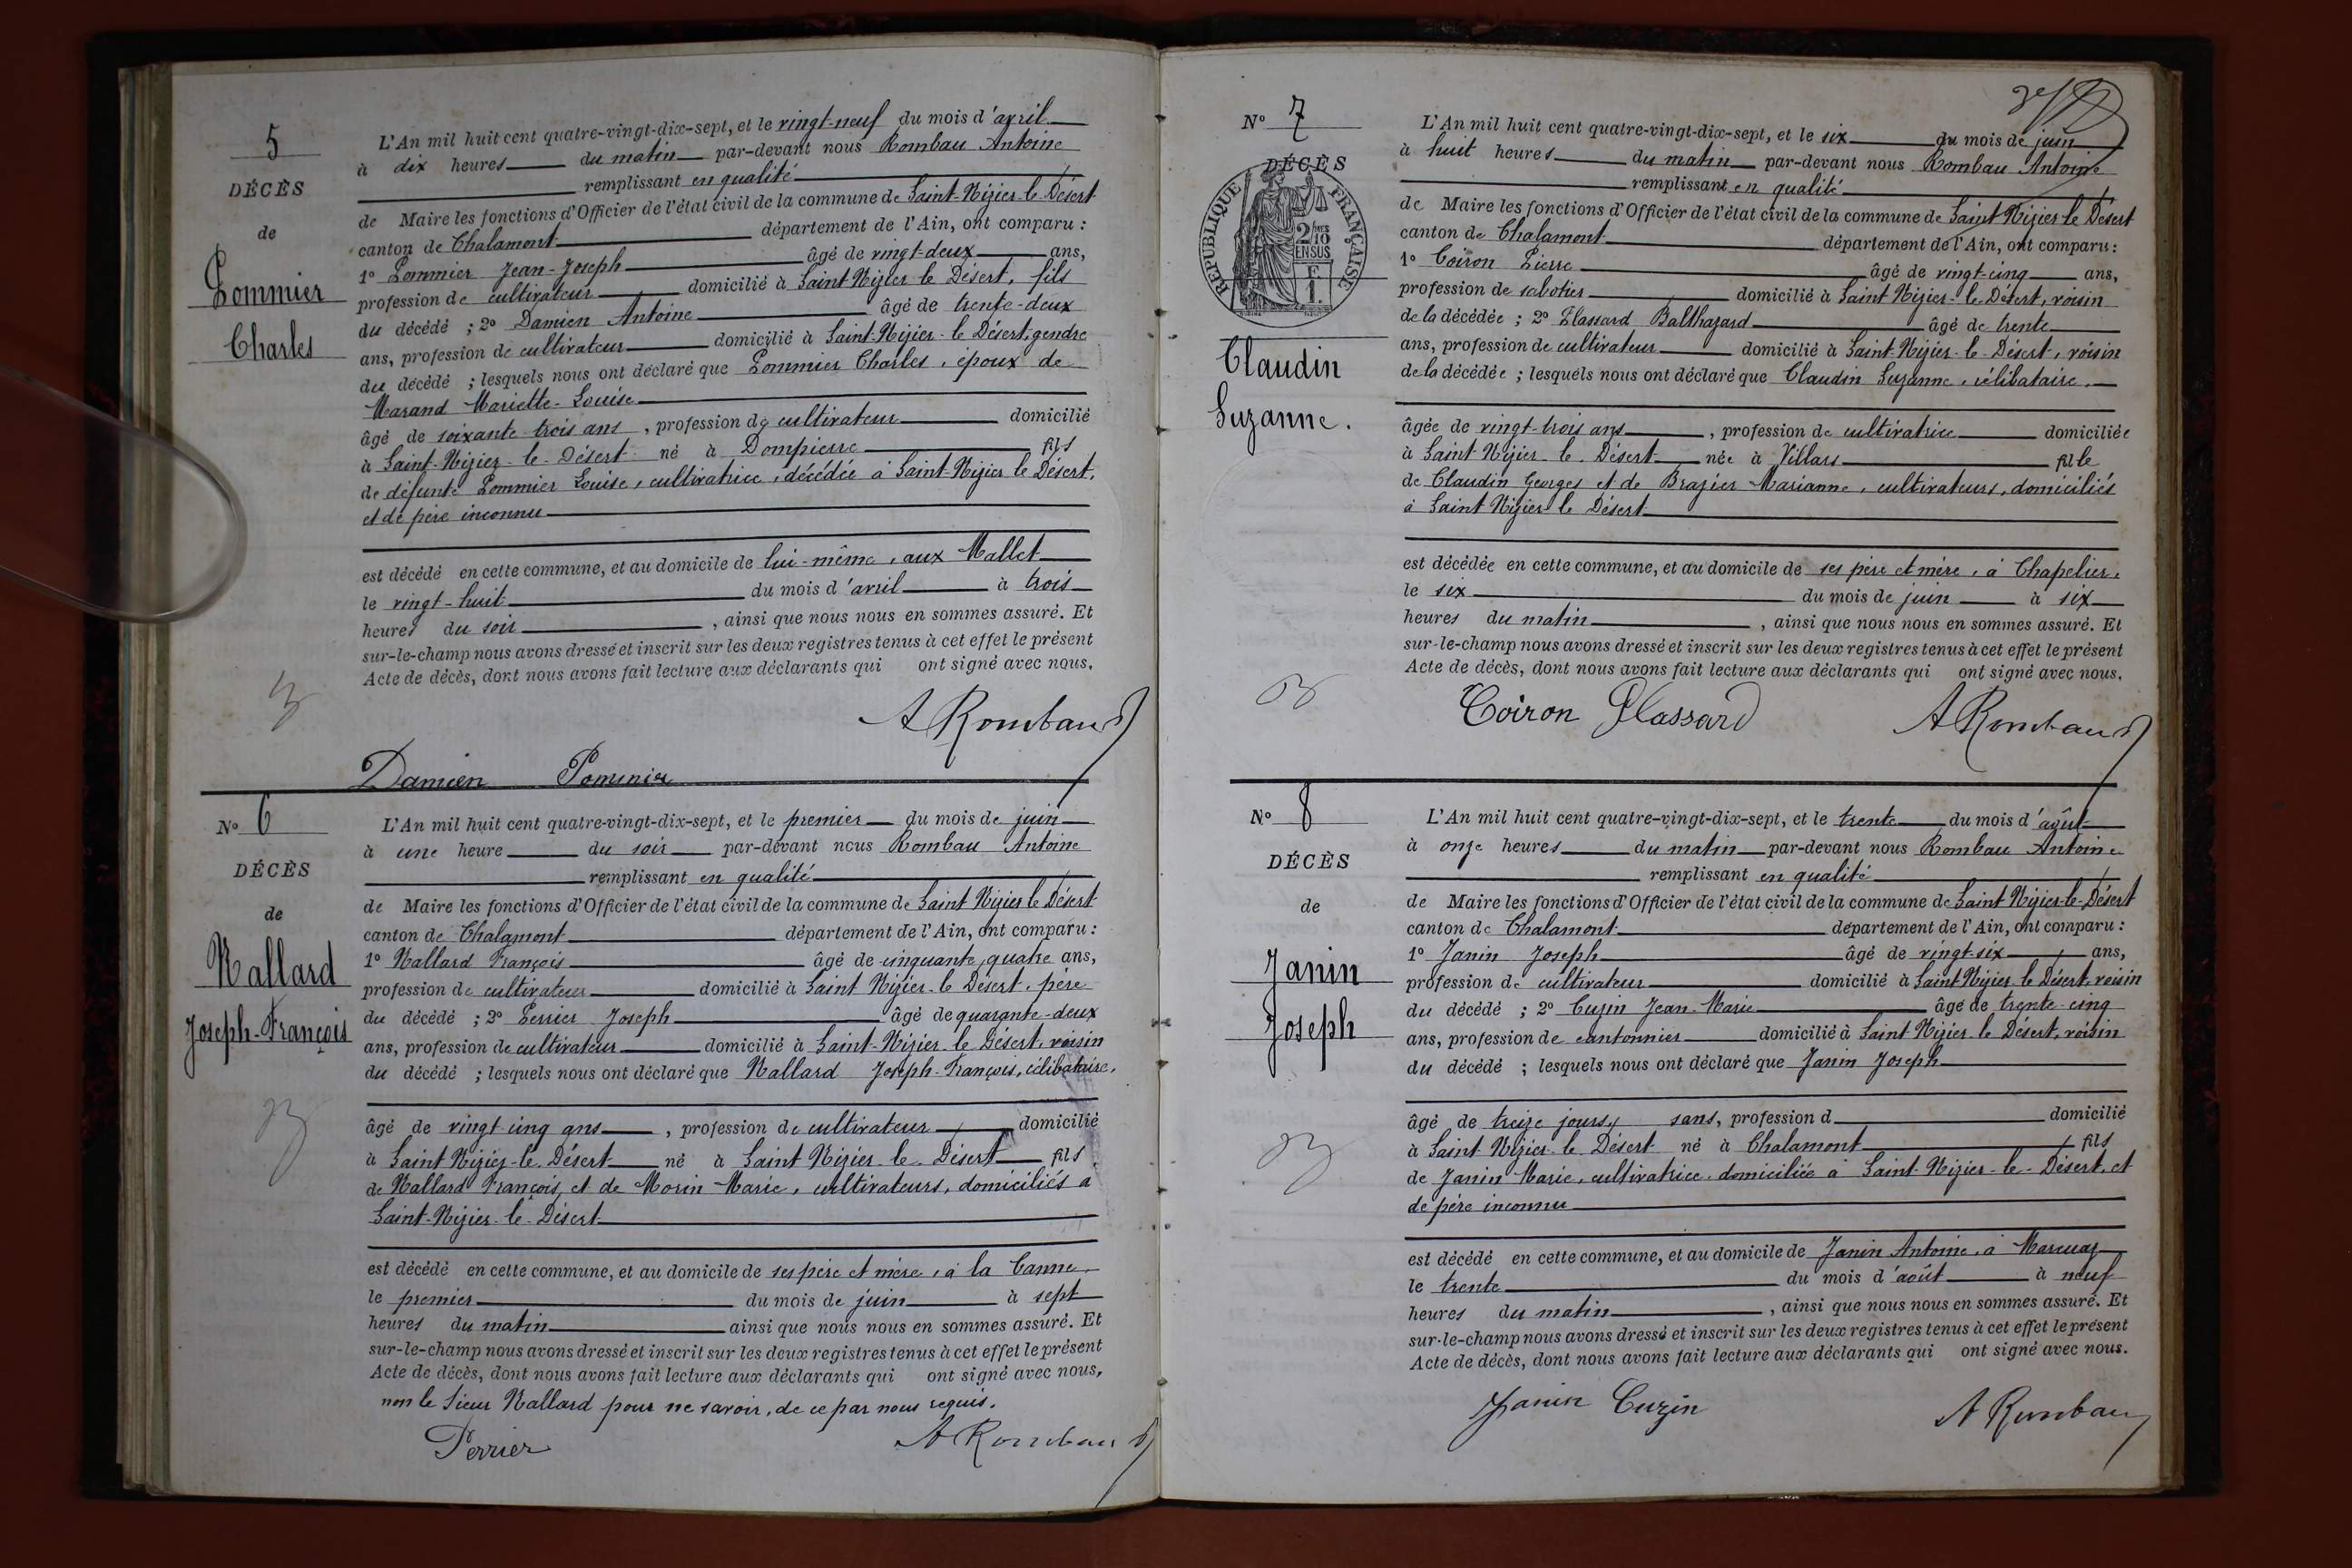 5
DÉCÈS
de
Pommier
Charles
L'An mil huit cent quatre-vingt-dix-sept, et le vingt-neuf du mois d'avril
à dix heures du matin par-devant nous Rombau Antoine
remplissant en qualité
de Maire les fonctions d'Officier de l'état civil de la commune de Saint-Nizier-le-Désert
canton de Chalamont département de l'Ain, ont comparu :
1º Pommier Jean-Joseph âgé de vingt-deux ans,
profession de cultivateur domicilié à Saint Nizier le Désert, fils
du décédé ; 2º Damien Antoine âgé de trente-deux
ans, profession de cultivateur domicilié à Saint-Nizier-le Désert, gendre
du décédé ; lesquels nous ont déclaré que Pommier Charles, époux de
Marand Mariette-Louise
âgé de soixante trois ans, profession de cultivateur domicilié
à Saint-Nizier-le-Désert né à Dompierre fils
de défunte Pommier Louise, cultivatrice, décédée à Saint-Nizier le Désert,
et de père inconnu
est décédé en cette commune, et au domicile de lui-même, aux Mallet
le vingt-huit du mois d'avril à trois
heures du soir, ainsi que nous nous en sommes assuré. Et
sur-le-champ nous avons dressé et inscrit sur les deux registres tenus à cet effet le présent
Acte de décès, dont nous avons fait lecture aux déclarants qui ont signé avec nous.
A Rombau
Damien Pommier
Nº 6
DÉCÈS
de
Nallard
Joseph-François
L'An mil huit cent quatre-vingt-dix-sept, et le premier du mois de juin
à une heure du soir par-devant nous Rombau Antoine
remplissant en qualité
de Maire les fonctions d'Officier de l'état civil de la commune de Saint Nizier le Désert
canton de Chalamont département de l'Ain, ont comparu :
1º Nallard François âgé de cinquante quatre ans,
profession de cultivateur domicilié à Saint Nizier-le Désert, père
du décédé ; 2º Perrier Joseph âgé de quarante-deux
ans, profession de cultivateur domicilié à Saint-Nizier-le Désert, voisin
du décédé ; lesquels nous ont déclaré que Nallard Joseph-François, célibataire,
âgé de vingt cinq ans, profession de cultivateur domicilié
à Saint Nizier-le-Désert né à Saint Nizier-le-Désert fils
de Nallard François, et de Morin Marie, cultivateurs, domiciliés à
Saint-Nizier-le-Désert
est décédé en cette commune, et au domicile de ses père et mère, à la Canne,
le premier du mois de juin à sept
heures du matin ainsi que nous nous en sommes assuré. Et
sur-le-champ nous avons dressé et inscrit sur les deux registres tenus à cet effet le présent
Acte de décès, dont nous avons fait lecture aux déclarants qui ont signé avec nous,
non le sieur Nallard pour ne savoir, de ce par nous requis.
Perrier A Rombau
Nº 7
DÉCÈS
RÉPUBLIQUE FRANÇAISE
2/10 EN SUS
Claudin
Suzanne.
L'An mil huit cent quatre-vingt-dix-sept, et le six du mois de juin
à huit heures du matin par-devant nous Rombau Antoine
remplissant en qualité
de Maire les fonctions d'Officier de l'état civil de la commune de Saint Nizier le Désert
canton de Chalamont département de l'Ain, ont comparu :
1º Coiron Pierre âgé de vingt-cinq ans,
profession de sabotier domicilié à Saint Nizier-le Désert, voisin
de la décédée ; 2º Plassard Balthazard âgé de trente
ans, profession de cultivateur domicilié à Saint-Nizier-le-Désert, voisin
de la décédée ; lesquels nous ont déclaré que Claudin Suzanne, célibataire,
âgée de vingt-trois ans, profession de cultivatrice domiciliée
à Saint-Nizier-le-Désert née à Villars fille
de Claudin Georges et de Brazier Marianne, cultivateurs, domiciliés
à Saint Nizier-le Désert
est décédée en cette commune, et au domicile de ses père et mère, à Chapelier,
le six du mois de juin à six
heures du matin, ainsi que nous nous en sommes assuré. Et
sur-le-champ nous avons dressé et inscrit sur les deux registres tenus à cet effet le présent
Acte de décès, dont nous avons fait lecture aux déclarants qui ont signé avec nous.
Coiron Plassard A Rombau
Nº 8
DÉCÈS
de
Janin
Joseph
L'An mil huit cent quatre-vingt-dix-sept, et le trente du mois d'août
à onze heures du matin par-devant nous Rombau Antoine
remplissant en qualité
de Maire les fonctions d'Officier de l'état civil de la commune de Saint Nizier-le-Désert
canton de Chalamont département de l'Ain, ont comparu :
1º Janin Joseph âgé de vingt-six ans,
profession de cultivateur domicilié à Saint Nizier le Désert, voisin
du décédé ; 2º Cuzin Jean-Marie âgé de trente-cinq
ans, profession de cantonnier domicilié à Saint Nizier-le Désert, voisin
du décédé ; lesquels nous ont déclaré que Janin Joseph
âgé de treize jours, sans, profession d domicilié
à Saint Nizier-le Désert né à Chalamont fils
de Janin Marie, cultivatrice, domiciliée à Saint-Nizier-le-Désert, et
de père inconnu
est décédé en cette commune, et au domicile de Janin Antoine, à
le trente du mois d'août à neuf
heures du matin, ainsi que nous nous en sommes assuré. Et
sur-le-champ nous avons dressé et inscrit sur les deux registres tenus à cet effet le présent
Acte de décès, dont nous avons fait lecture aux déclarants qui ont signé avec nous.
Janin Cuzin A Rombau